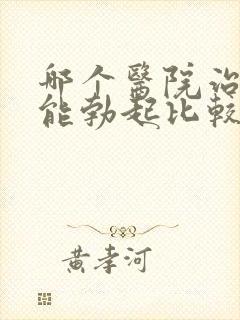 那个醫院治
能勃起比較
黄孝河